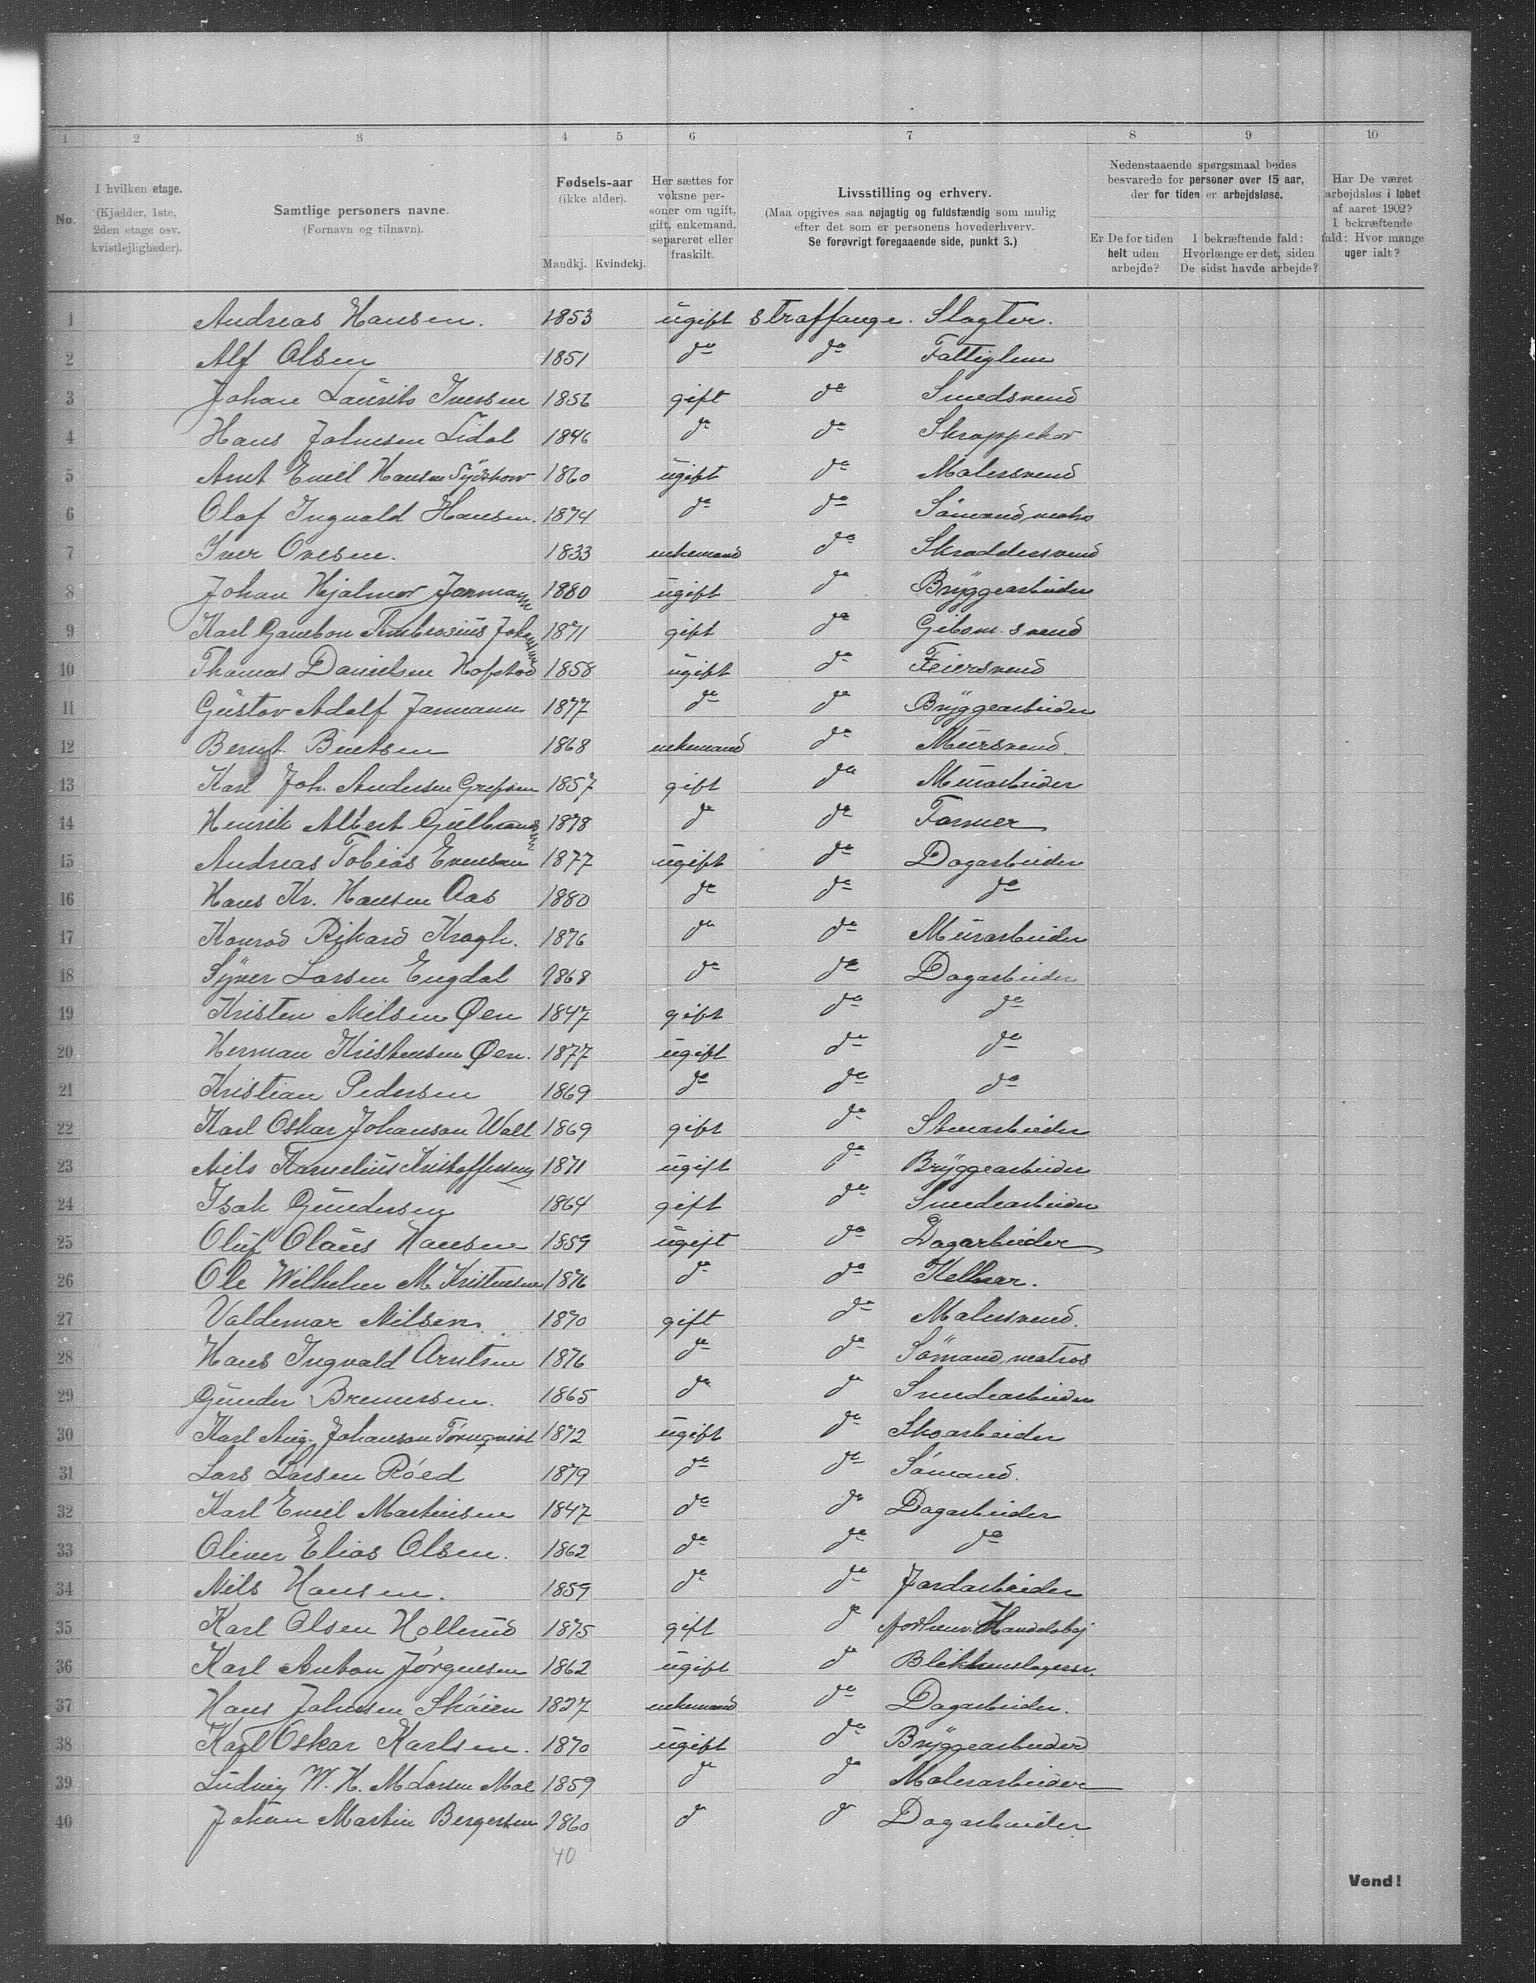 1 2 3 4 5 6 7 8 9 10
No.
I hvilken etage.
(Kjælder, 1ste,
2den etage osv.
kvistlejligheder).
Samtlige personers navne.
(Fornavn og tilnavn).
Fødsels-aar
(ikke alder).
Mandkj. Kvindekj.
Her sættes for
voksne per-
soner om ugift,
gift, enkemand,
separeret eller
fraskilt.
Livsstilling og erhverv.
(Maa opgives saa nøjagtig og fuldstændig som mulig
efter det som er personens hovederhverv.
Se forøvrigt foregaaende side, punkt 3.)
Nedenstaaende spørgsmaal bedes
besvarede for personer over 15 aar,
der for tiden er arbejdsløse.
Er De for tiden
helt uden
arbejde?
I bekræftende fald:
Hvorlænge er det, siden
De sidst havde arbejde?
Har De været
arbejdsløs i løbet
af aaret 1902?
I bekræftende
fald: Hvor mange
uger ialt?
1 Andreas Hansen. 1853 ugift straffange. Slagter.
2 Alf Olsen 1851 do do Fattiglem
3 Johan Laurits Iversen 1856 gift do Smedsvend
4 Hans Johnsen Lidal 1846 do do Skrappekar
5 Arnt Emil Hansen 1860 ugift do Malersvend
6 Olaf Ingvald Hansen. 1874 do do Sømand, matros
7 Iver Ovesen. 1833 enkemand do Skræddersvend
8 Johan Hjalmar Jarmann 1880 ugift do Bryggearbeider
9 Karl Ambrosius Johansen 1871 gift do Gibsm. svend
10 Thomas Danielsen Hofstad 1858 ugift do Feiersvend
11 Gustav Adolf Jarmann 1877 do do Bryggearbeider
12 Bernt Berntsen 1868 enkemand do Mursvend.
13 Karl Joh. Andersen Grefsen 1857 gift do Murarbeider
14 Henrik Albert Gulbrandsen 1878 do do Former
15 Andreas Tobias Evensen 1877 ugift do Dagarbeider
16 Hans Kr. Hansen Aas 1880 do do do
17 Konrad Rikard Kragh. 1876 do do Murarbeider
18 Syver Larsen Engdal 1868 do do Dagarbeider
19 Kristen Nilsen Øen 1847 gift do do
20 Herman Kristensen Øen. 1877 ugift do do
21 Kristian Pedersen 1869 do do do
22 Karl Oskar Johanson Wall 1869 gift do Stenarbeider
23 Nils Kornelius Kristoffersen 1871 ugift do Bryggearbeider
24 Isak Gundersen 1864 gift do Smedearbeider
25 Oluf Olaus Hansen 1859 ugift do Dagarbeider
26 Ole Wilhelm M. Kristensen 1876 do do Kelner.
27 Valdemar Nilsen. 1870 gift do Malersvend.
28 Hans Ingvald Arntsen 1876 do do Sømand, matros
29 Gunder Bremersen. 1865 do do Smedearbeider
30 Karl Aug. Johanson Tørnqvist 1872 ugift do Skoarbeider
31 Lars Larsen Røed 1879 do do Sømand.
32 Karl Emil Martinsen 1847 do do Dagarbeider
33 Oliver Elias Olsen. 1862 do do do
34 Nils Hansen. 1859 do do Jordarbeider
35 Karl Olsen Hollerud 1875 gift do Handelsbj
36 Karl Anton Jørgensen 1862 ugift do Blikkenslagersv.
37 Hans Johnsen Skaien 1827 enkemand do Dagarbeider.
38 Karl Oskar Karlsen. 1870 ugift do Bryggearbeider
39 Ludvig W. H. M. Larsen Moe 1859 do do Malerarbeider
40 Johan Martin Bergersen 1860 do do Dagarbeider.
40
Vend!